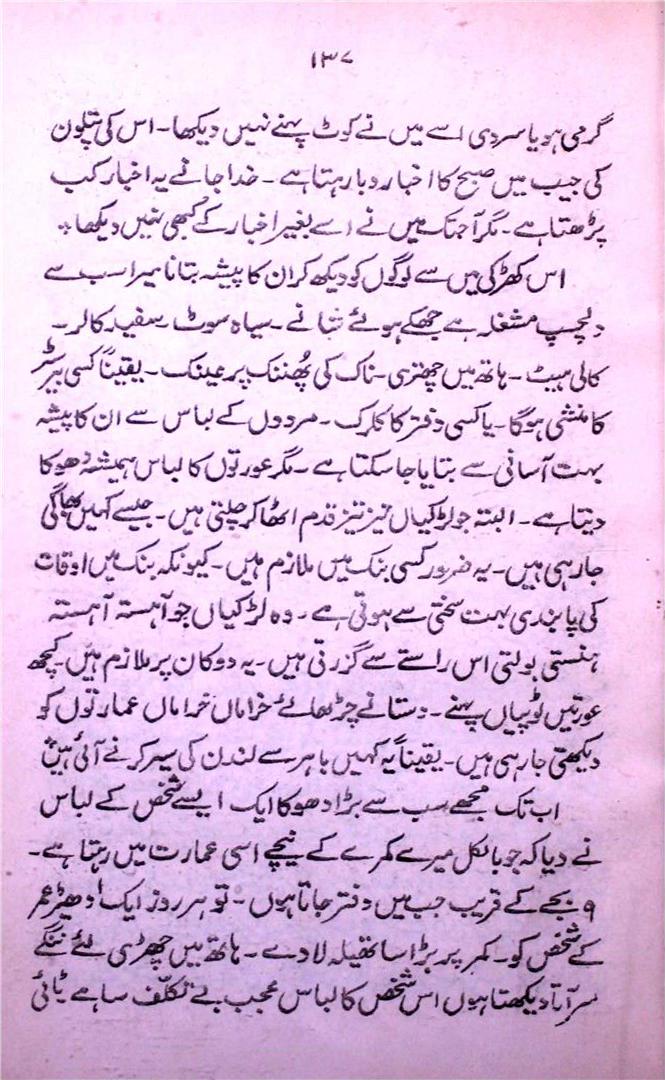 ۱۳۷
گرمی ہو یا سردی اسے میں نے کوٹ پہنے نہیں دیکھا۔ اس کی پتلون
کی جیب میں صبح کا اخبار دبا رہتا ہے۔ خدا جانے یہ اخبار کب
پڑھتا ہے۔ مگر آجتک میں نے اسے بغیر اخبار کے کبھی نہیں دیکھا۔
اس کھڑکی میں سے لوگوں کو دیکھ کر ان کا پیشہ بتانا میرا سب سے
دلچسپ مشغلہ ہے جھکے ہوئے شانے۔ سیاہ سوٹ سفید کالر۔
کالی ہیٹ۔ ہاتھ میں چھتری۔ ناک کی پھننگ پر عینک۔ یقیناً کسی بیرسٹر
کا منشی ہوگا۔ یا کسی دفتر کا کلرک۔ مردوں کے لباس سے ان کا پیشہ
بہت آسانی سے بتایا جا سکتا ہے۔ مگر عورتوں کا لباس ہمیشہ دھوکا
دیتا ہے۔ البتہ جو لڑکیاں تیز تیز قدم اٹھا کر چلتی ہیں۔ جیسے کہیں بھاگی
جا رہی ہیں۔ یہ ضرور کسی بنک میں ملازم ہیں۔ کیونکہ بنک میں اوقات
کی پابندی بہت سختی سے ہوتی ہے۔ وہ لڑکیاں جو آہستہ آہستہ
ہنستی بولتی اس راستے سے گزرتی ہیں۔ یہ دوکان پر ملازم ہیں۔ کچھ
عورتیں ٹوپیاں پہنے۔ دستانے چڑھائے خراماں خراماں عمارتوں کو
دیکھتی جا رہی ہیں۔ یقیناً یہ کہیں باہر سے لندن کی سیر کرنے آئی ہیں
اب تک مجھے سب سے بڑا دھوکا ایک ایسے شخص کے لباس
نے دیا کہ جو بالکل میرے کمرے کے نیچے اسی عمارت میں رہتا ہے۔
۹ بجے کے قریب جب میں دفتر جاتا ہوں۔ تو ہر روز ایک ادھیڑ عمر
کے شخص کو۔ کمر پر بڑا سا تھیلہ لادے۔ ہاتھ میں چھڑی لئے ننگے
سر آتا دیکھتا ہوں اس شخص کا لباس عجب بے تکلّف سا ہے ٹائی